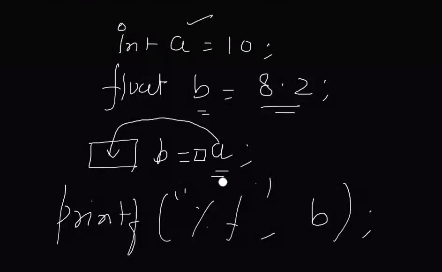 int a = 10;
float b = 8.2;
b = a;
printf("%f", b);